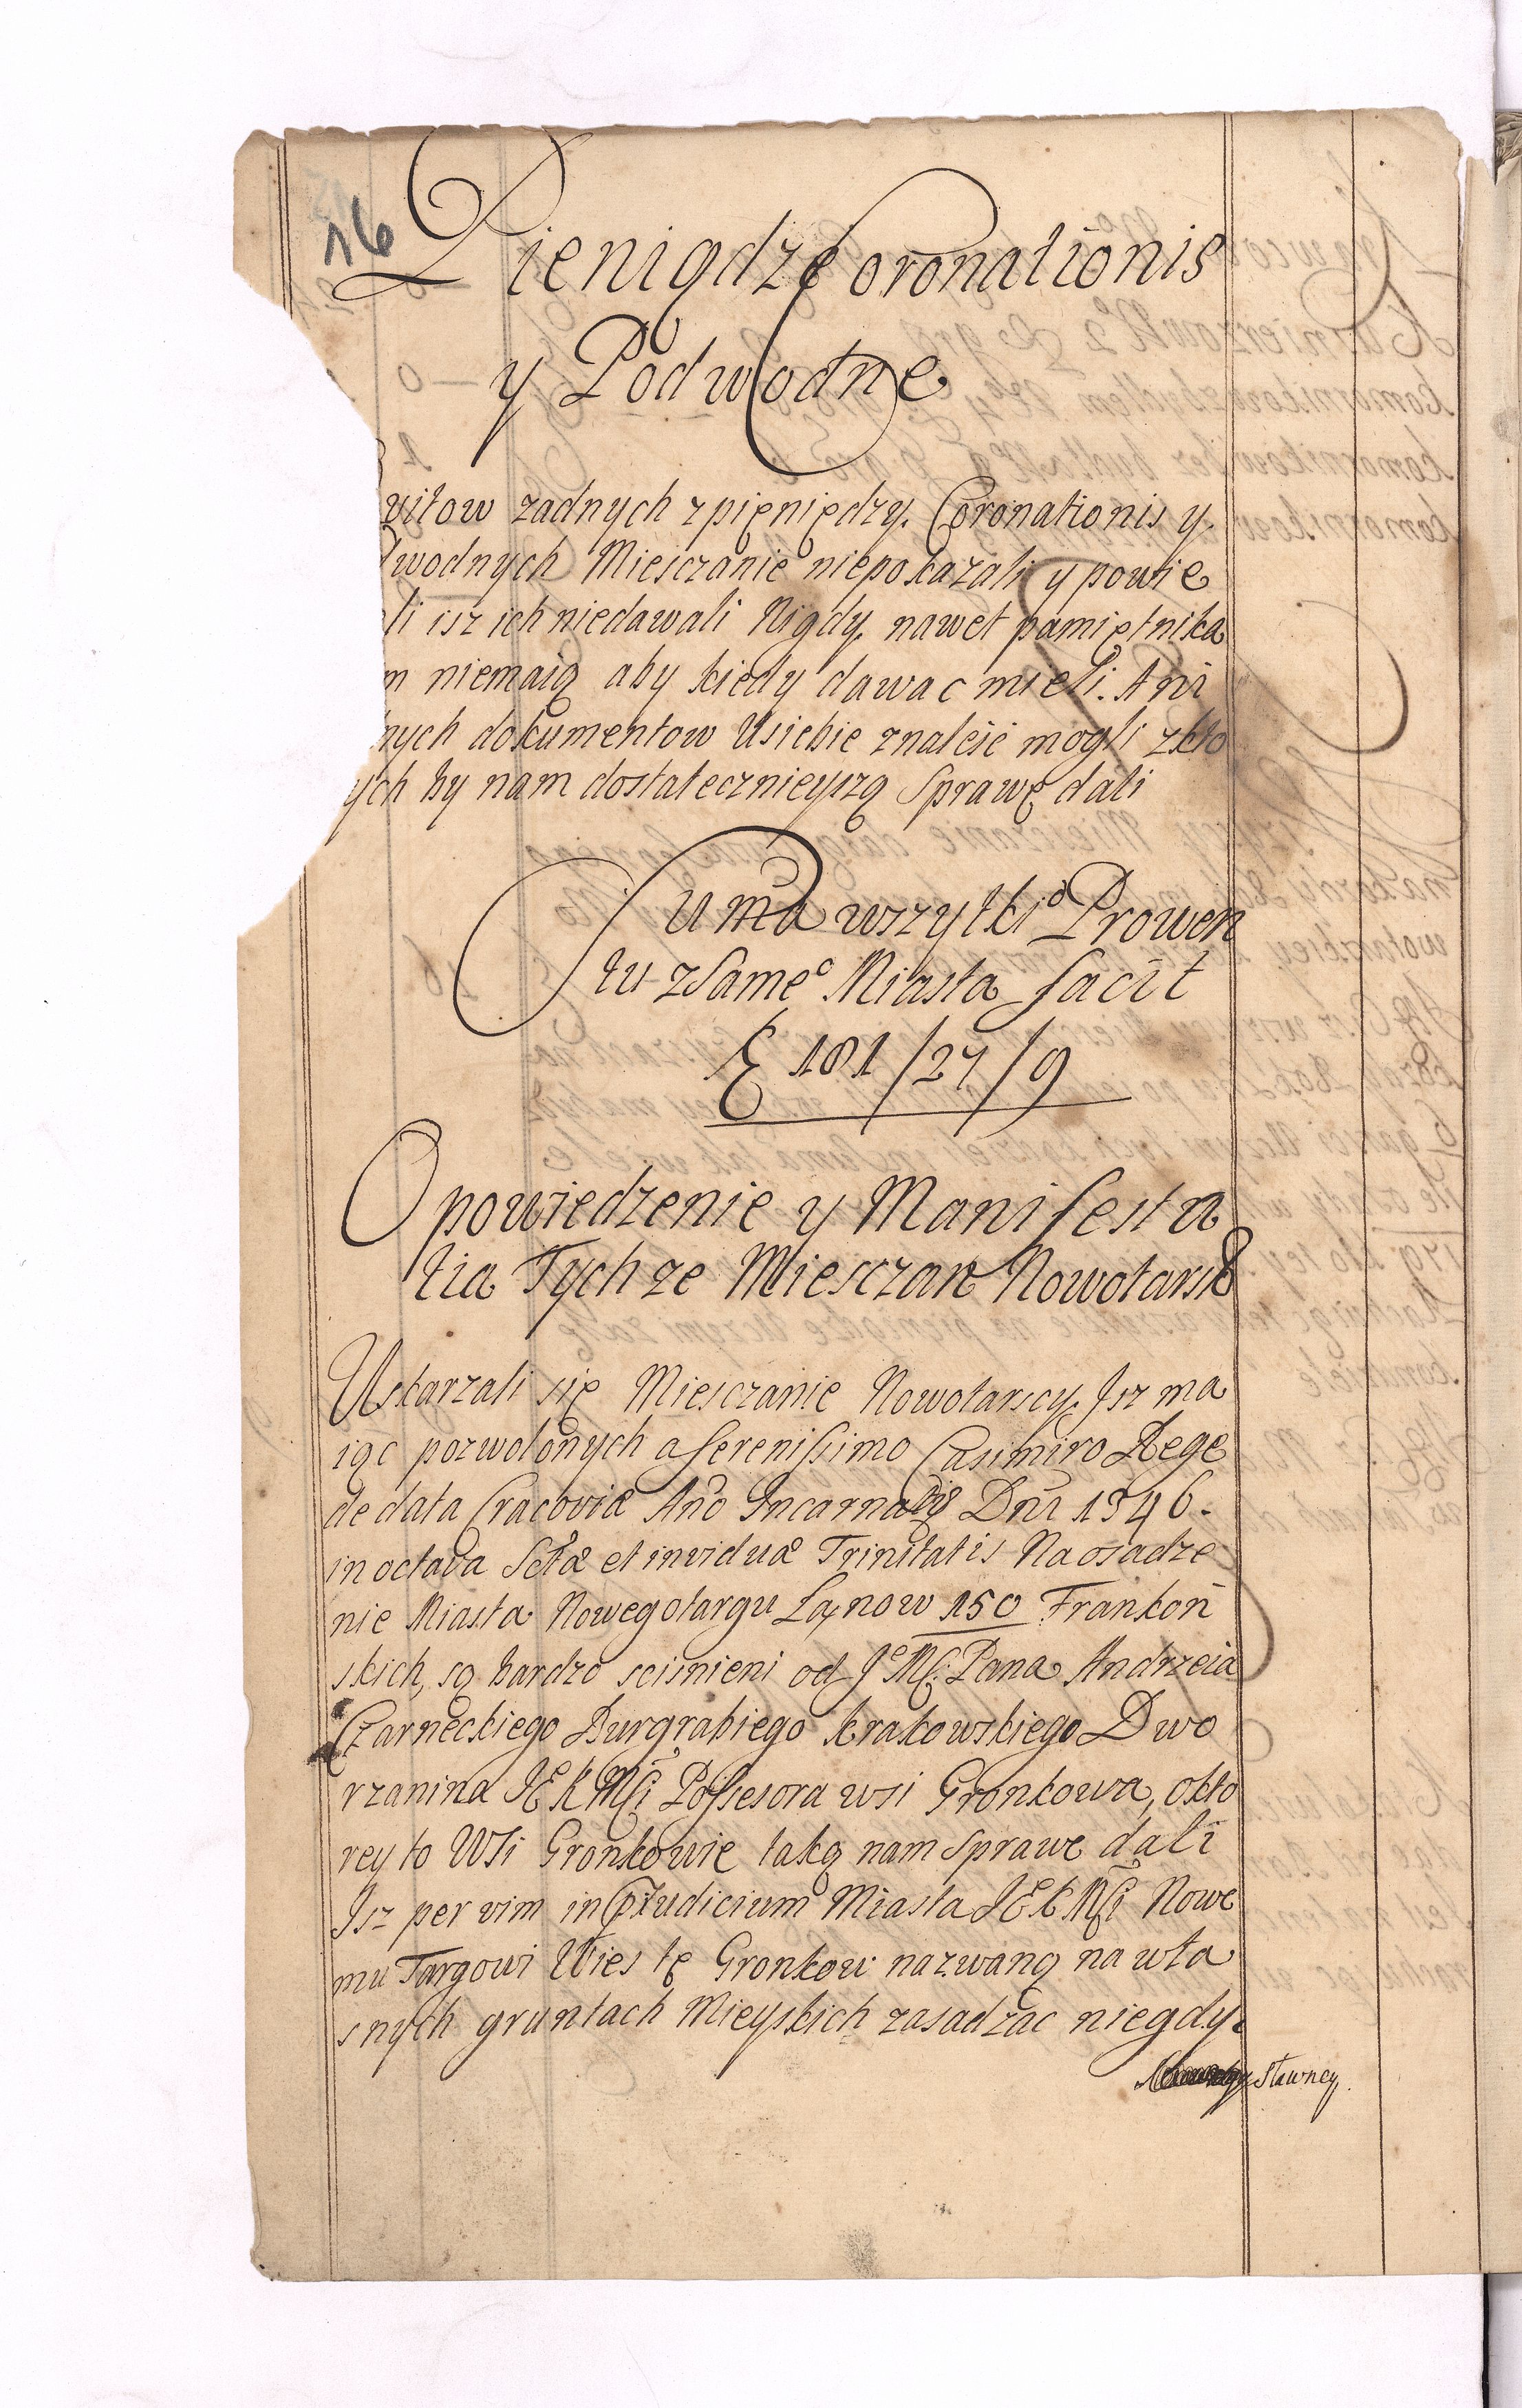 16
Pieniądze Coronationis
y Podwodne
witow zadnych z pięniędzy Coronationis y
dwodnych Miesczanie niepokazali y powie
li isz ich niedawali Nigdy nawet pamiętnika
m niemaią aby kiedy dawac mieli. Ani
nych dokumentow Usiebie znaleść mogli z kto
ych by nam dostatecznieyszą Sprawę dali
Suma wszytkio Prowen
tu z Sameo Miasta facit
181/27/9
Opowiedzenie y Manifesta
tia Tych ze Miesczan Nowotarsk
Uskarzali się Miesczanie Nowotarscy. Isz ma
iąc pozwolonych a Serenissimo Casimiro Rege
de data Cracoviæ Año Incarna Dñi 1346.
in octava Sctæ et inviduæ Trinitatis Na osadze
nie Miasta Nowegotargu Łanow 150 Frankoń
skich, są bardzo scisnieni od Jeo Mći Pana Andrzeia
Czarneckiego Burgrabiego krakowskiego Dwo
rzanina JE K Mći Possesora wsi Gronkowa, okto
rey to Wsi Gronkowie taką nam Sprawe dali
Isz per vim in præiudicium Miasta JE K Mći Nowe
mu Targowi Wies tę Gronkow nazwaną na wła
snych gruntach Mieyskich zasadzac niegdy
Sławney.